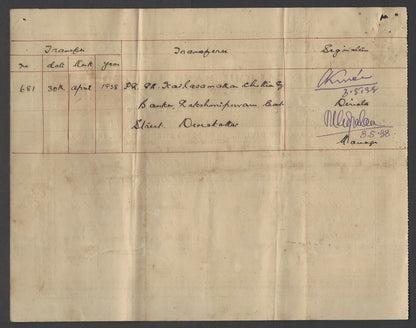 Transfer Transferee Signature
No date Month year
681 30th April 1938 PR. PR. Kailasanathan Chettiar
Banker, Lakshmipuram East
Street. Devakottai
3.5.38
Director
3.5.38.
Manager